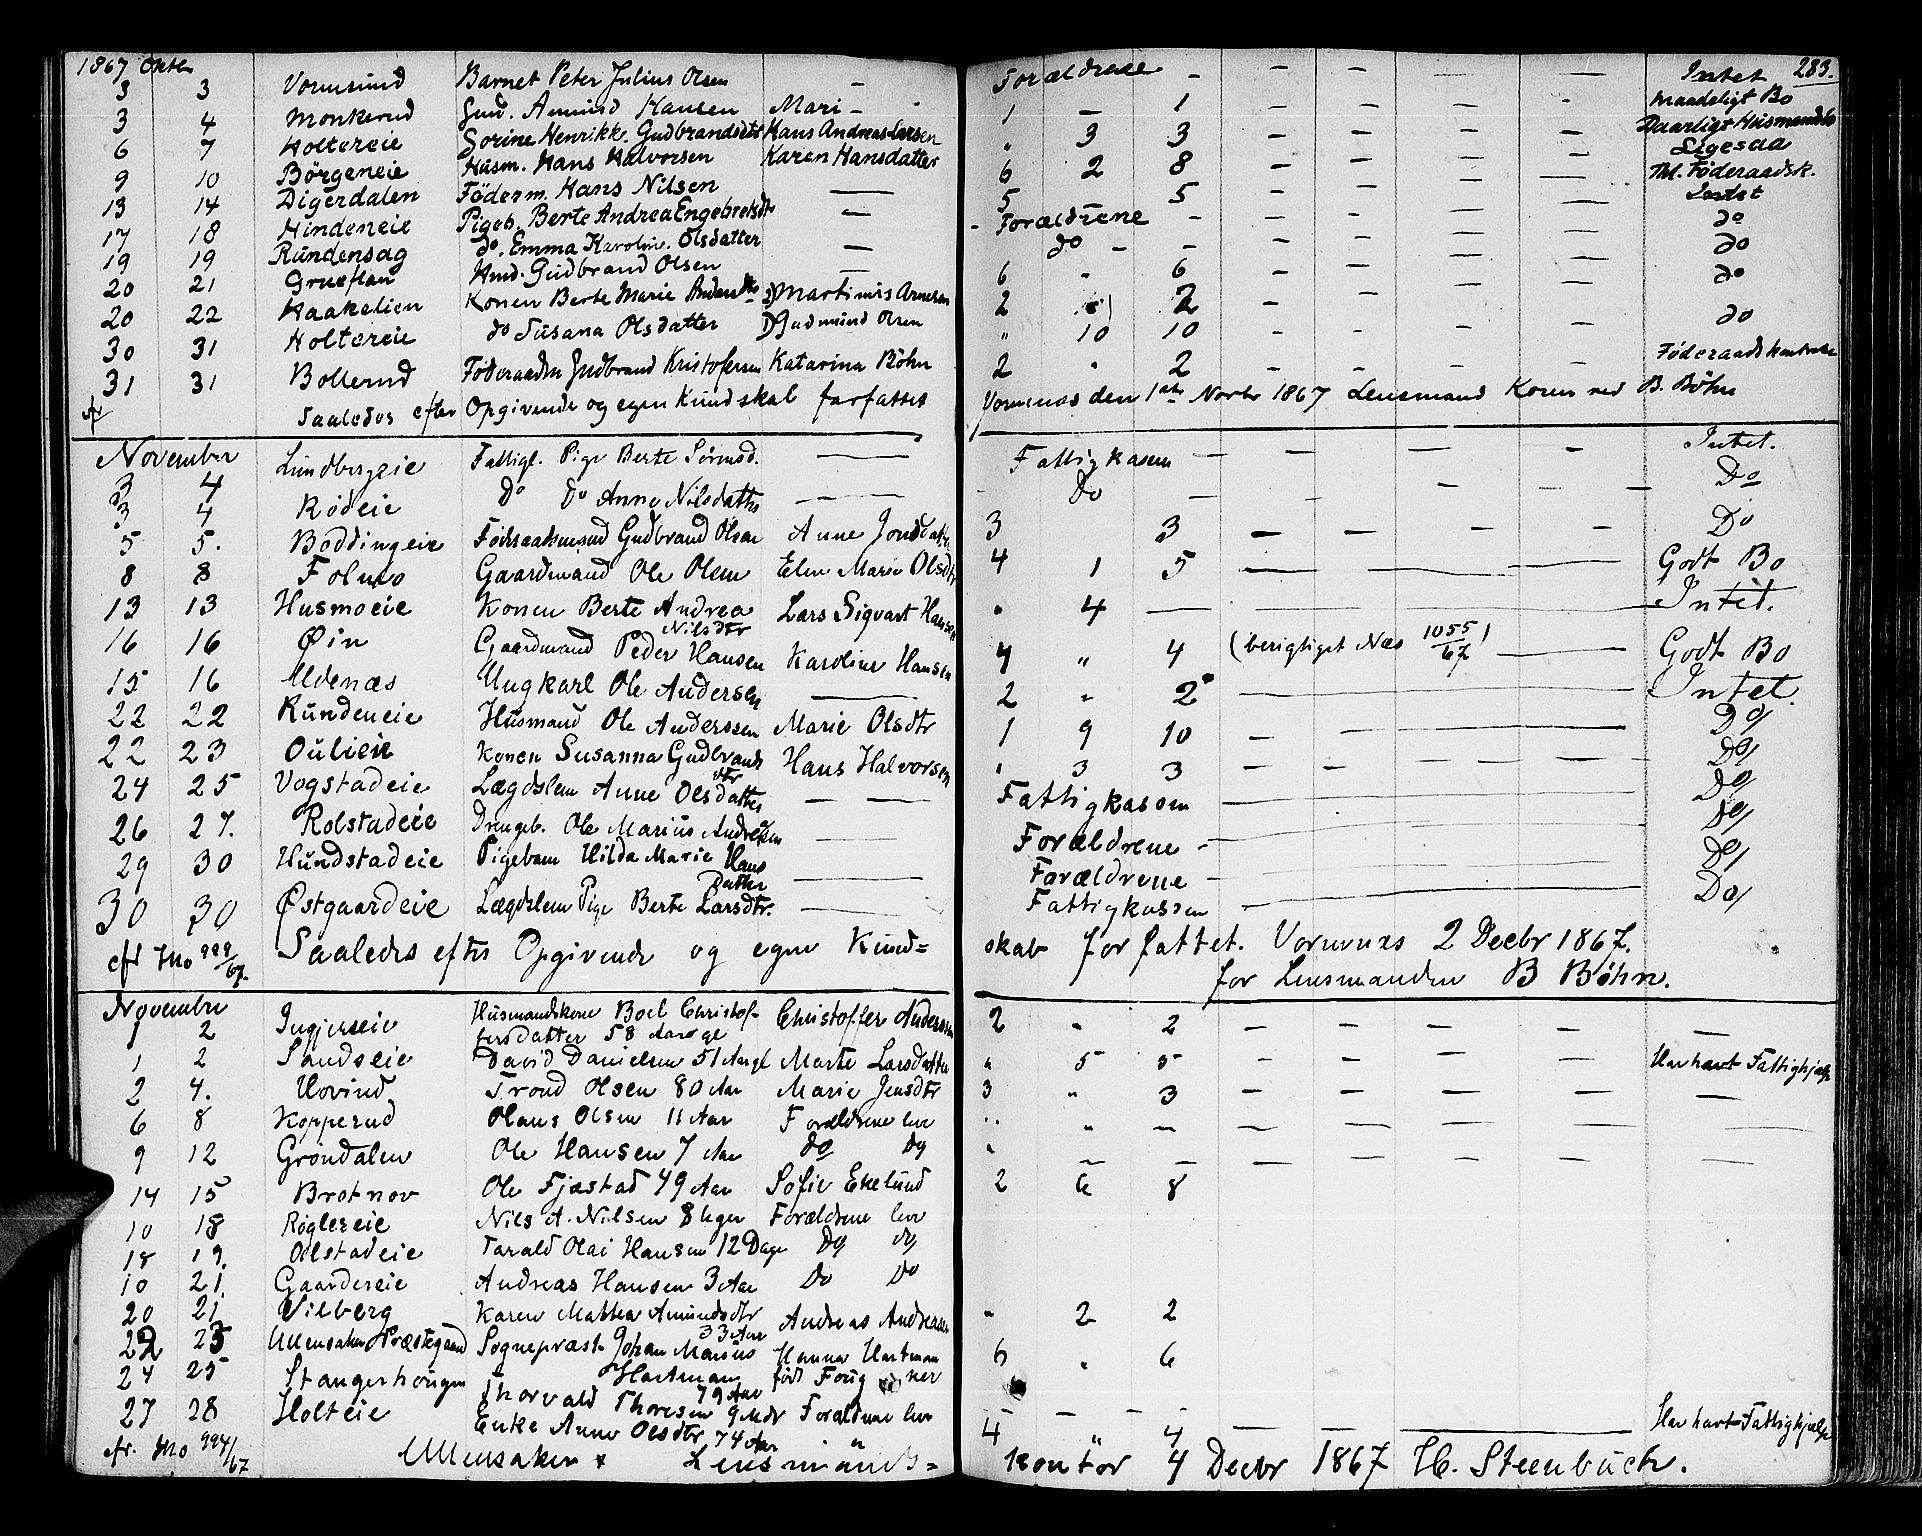 1867 Oktbr 283.
3 3 Vormsund Barnet Peter Julius Olsen — Forældrene — — — — — Intet
3 4 Monkerud Gmd. Amund Hansen Mari — 1 — 1 — — — — — maadeligt Bo
6 7 Holtereie Sorine Henrikke Gudbrandsdtr Hans Andreas Larsen " 3 3 — — — — — Daarligt Husmandsbo
9 10 Börgeneie Husm. Hans Halvorsen Karen Hansdatter 6 2 8 — — — — — Ligesaa
13 14 Digerdalen Föderm. Hans Nilsen — 5 — 5 — — — — — Föderaadsk.
17 18 Hindeneie Pigeb. Berte Andrea Engebretsdtr — Forældrene — — — — — Intet
19 19 Rundensag do. Emma Karolin. Olsdatter — do — — — — — do
20 21 Grueflan Gudbrand Olsen — 6 " 6 — — — — — do
20 22 Haakalien Konen Berte Marie Martinus Arnesen 2 2 — — — — — do
30 31 Holtereie do Susana Olsdatter Gudmund Olsen " 10 10 — — — — — do
31 31 Bollerud Gudbrand Kristofersen Katarina Böhn 2 " 2 — — — — — Föderaadskontrakt
Saaledes efter Opgivende og egen Kundskab forfattet Vormnæs den 1ste Novbr 1867 Lensmand Koren ved B. Böhn
November
3 4 Lundbergeie Fattigl. Pige Berte — Fattigkasen — — — — — Intet.
3 4 Rödeie Do Do Anne Nilsdatter — — Do — — — — — Do
5 5. Boddingeie Föderaadsmand Gudbrand Olsen Anne Jonsdatter 3 3 — — — — — Do
8 8 Folmo Gaardmand Ole Olsen Elen Marie Olsdtr 4 1 5 — — — Godt Bo
13 13 Husmoeie Konen Berte Andrea Nilsdtr Lars Sigvart Hansen " 4 — Intet.
16 16 Øin Gaardmand Peder Hansen Karoline Hansen 4 " 4 (berigtiget Næs 1055/67) — Godt Bo
15 16 Udenæs Ungkarl Ole Andersen — 2 " 2 — Intet.
22 22 Rundeneie Husmand Ole Anderssen Marie Olsdtr 1 9 10 — Do/
22 23 Oulien Konen Susanna Gudbrandsdtr Hans Halvorsen " 3 3 — — — Do/
24 25 Vogstadeie Lægdslem Anne Olsdatter — — Fattigkassen — Do/
26 27. Rolstadeie Drengeb. Ole Marius Andresen — Forældrene — Do/
29 30 Hundstadeie Pigebarn Hilda Marie Hans Datter — Forældrene — Do/
30 30 Østgaardeie Lægdslem Pige Berte Larsdtr. — Fattigkassen — Do/
cfr No 999/67. Saaledes efter Opgivende og egen Kund= skab forfattet. Vormnæs 2 Decbr 1867.
for Lensmanden B Böhn.
November
1 2 Ingjerseie Husmandskone Boel Christof= fersdatter 58 Aar gl Christoffer Andersen 2 " 2 — — — — — —
1 2 Sandseie David Danielsen 51 Aar gl Marte Larsdatter " 5 5 — — — — — Har havt Fattighjælp
2 4. Hovind Trond Olsen 80 Aar Marie Jensdtr 3 " 3 — — — — — —
6 8 Kopperud Olaus Olsen 11 Aar Forældrene leve " " — — — — — — —
9 12 Gröndalen Ole Hansen 7 Aar Do Do " — — — — — — — —
14 15 Brotnov Ole Fjæstad 49 Aar Sofie Ekelund 2 6 8
10 18 Röglereie Nils A. Nilsen 8 Uger Forældrene leve
18 19. Olstadeie Tarald Olai Hansen 12 Dage Do do
10 21. Gaardereie Andreas Hansen 3 Aar Do Do
20 21 Vilberg Karen Mathea Amundsdtr 33 Aar Andreas Andreasen " 2 2
22 23 Ullensaker Præstegaard Sognepræst Johan Marius Hartman 79 Aar Hanna Hartman født Fougner 6 " 6
24 25 Stangerhougen Thorvald Thoresen 9 Mdr Forældrene leve — — — —
27 28 Holteie Enke Anne Olsdtr 74 Aar " 4 " 4 — — — Har havt Fattighjælp
cfr. No 994/67 Ullensaker Lensmands= kontor 4 Decbr 1867 H. Steenbuch.